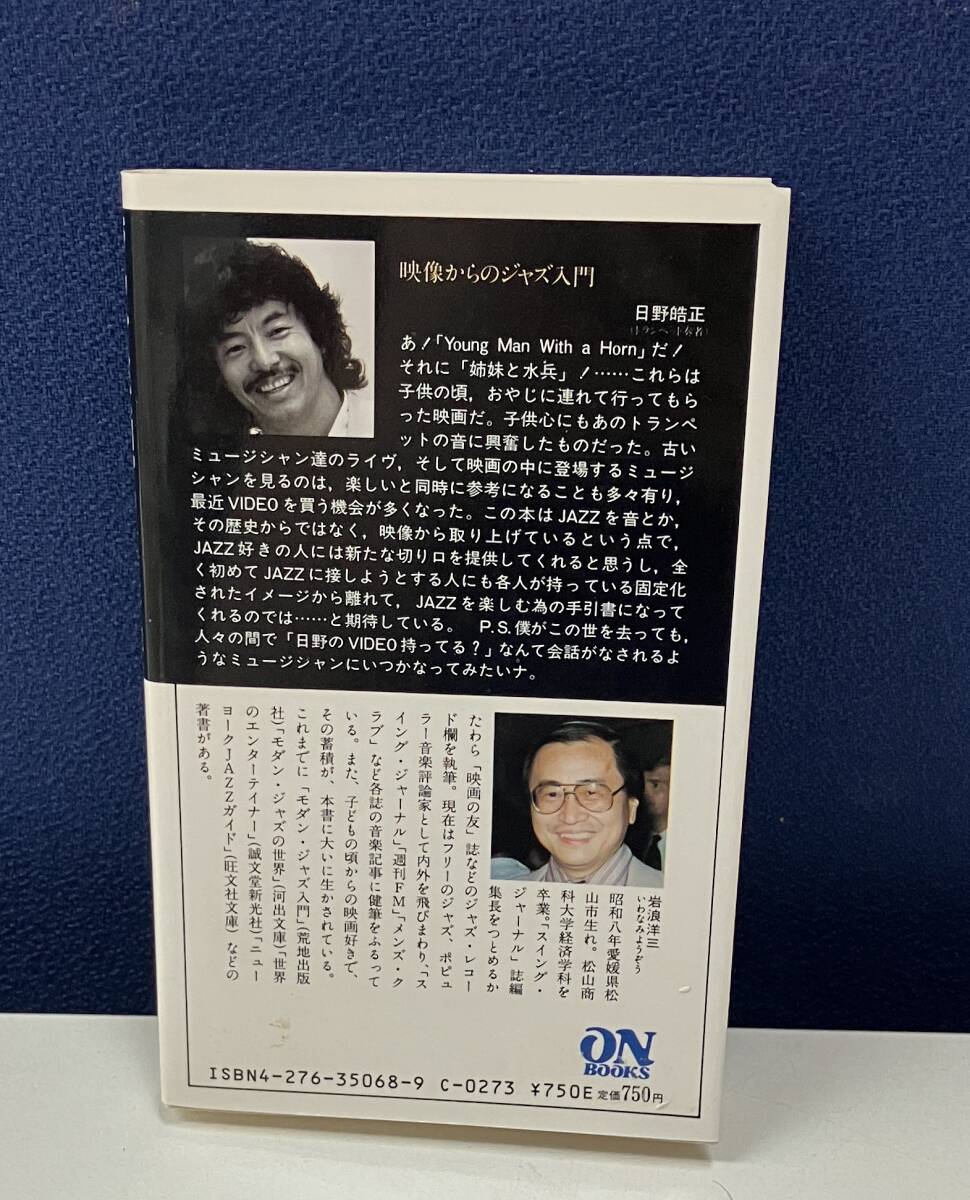 映像からのジャズ入門
日野皓正
(トランペット奏者)
あ!「Young Man With a Horn」だ!
それに「姉妹と水兵」!……これらは
子供の頃，おやじに連れて行ってもら
った映画だ。子供心にもあのトランペ
ットの音に興奮したものだった。古い
ミュージシャン達のライヴ，そして映画の中に登場するミュージ
シャンを見るのは，楽しいと同時に参考になることも多々有り，
最近VIDEOを買う機会が多くなった。この本はJAZZを音とか，
その歴史からではなく，映像から取り上げているという点で，
JAZZ好きの人には新たな切り口を提供してくれると思うし，全
く初めてJAZZに接しようとする人にも各人が持っている固定化
されたイメージから離れて，JAZZを楽しむ為の手引書になって
くれるのでは……と期待している。 P.S.僕がこの世を去っても，
人々の間で「日野のVIDEO持ってる?」なんて会話がなされるよ
うなミュージシャンにいつかなってみたいナ。
岩浪洋三
いわなみようぞう
昭和八年愛媛県松
山市生れ。松山商
科大学経済学科を
卒業。「スイング・
ジャーナル」誌編
集長をつとめるか
たわら「映画の友」誌などのジャズ・レコー
ド欄を執筆。現在はフリーのジャズ、ポピュ
ラー音楽評論家として内外を飛びまわり、「ス
イング・ジャーナル」「週刊FM」「メンズ・ク
ラブ」など各誌の音楽記事に健筆をふるって
いる。また、子どもの頃からの映画好きで、
その蓄積が、本書に大いに生かされている。
これまでに「モダン・ジャズ入門」(荒地出版
社)「モダン・ジャズの世界」(河出文庫)「世界
のエンターテイナー」(誠文堂新光社)「ニュー
ヨークJAZZガイド」(旺文社文庫)などの
著書がある。
ON
BOOKS
ISBN4-276-35068-9 C-0273 ¥750E 定価750円